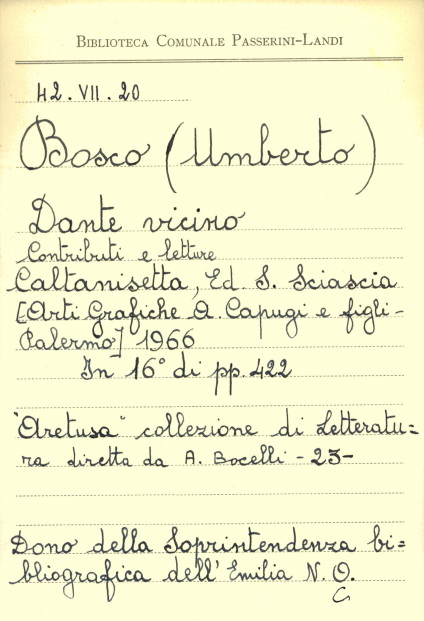 BIBLIOTECA COMUNALE PASSERINI-LANDI
42.VII.20
Bosco (Umberto)
Dante vicino
Contributi e letture
Caltanisetta, Ed. S. Sciascia
[Arti Grafiche A. Capugi e figli-
Palermo] 1966
In 16° di pp. 422
"Aretusa" collezione di Letteratu=
ra diretta da A. Bocelli - 23-
Dono della Soprintendenza bi=
bliografica dell'Emilia N. O.